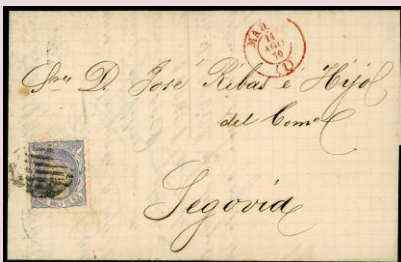 MAD
14
AGO
70
(1)
Sres D. José Ribas é Hijo
del Comº
Segovia